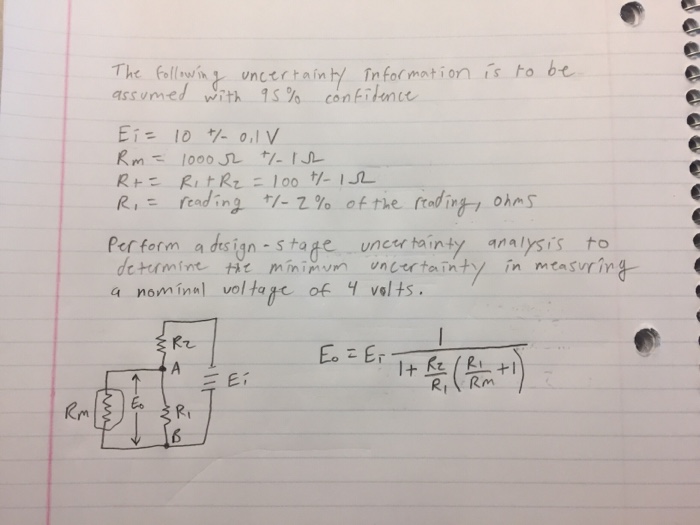 The following uncertainty information is to be
assumed with 95% confidence
Ei = 10 +/- 0.1V
Rm = 1000 Ω +/- 1Ω
Rt = R1 + R2 = 100 +/- 1Ω
R1 = reading +/- 2% of the reading, ohms
Perform a design-stage uncertainty analysis to
determine the minimum uncertainty in measuring
a nominal voltage of 4 volts.
R2
A
Ei
Rm
Eo
R1
B
Eo = Ei 1 / (1 + R2/R1 (R1/Rm + 1))